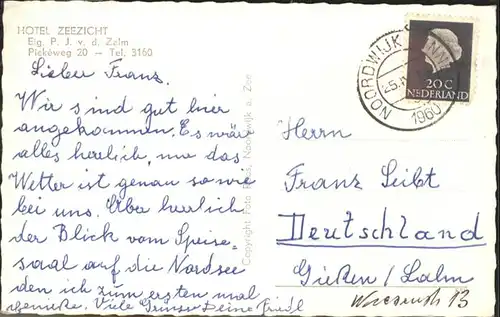 HOTEL ZEEZICHT
Eig. P. J. v. d. Zalm
Pickéweg 20 – Tel. 3160
Lieber Franz.
Wir sind gut hier
angekommen. Es wäre
alles herrlich, nur das
Wetter ist genau so wie
bei uns. Aber herrlich
der Blick vom Speise-
saal auf die Nordsee
den ich zum ersten mal
genieße. Viele Grüsse Deine Friedl
Copyright Foto Noordwijk a. Zee
NOORDWIJK
1960
20C
NEDERLAND
Herrn
Franz Seibt
Deutschland
Gießen / Lahn
13